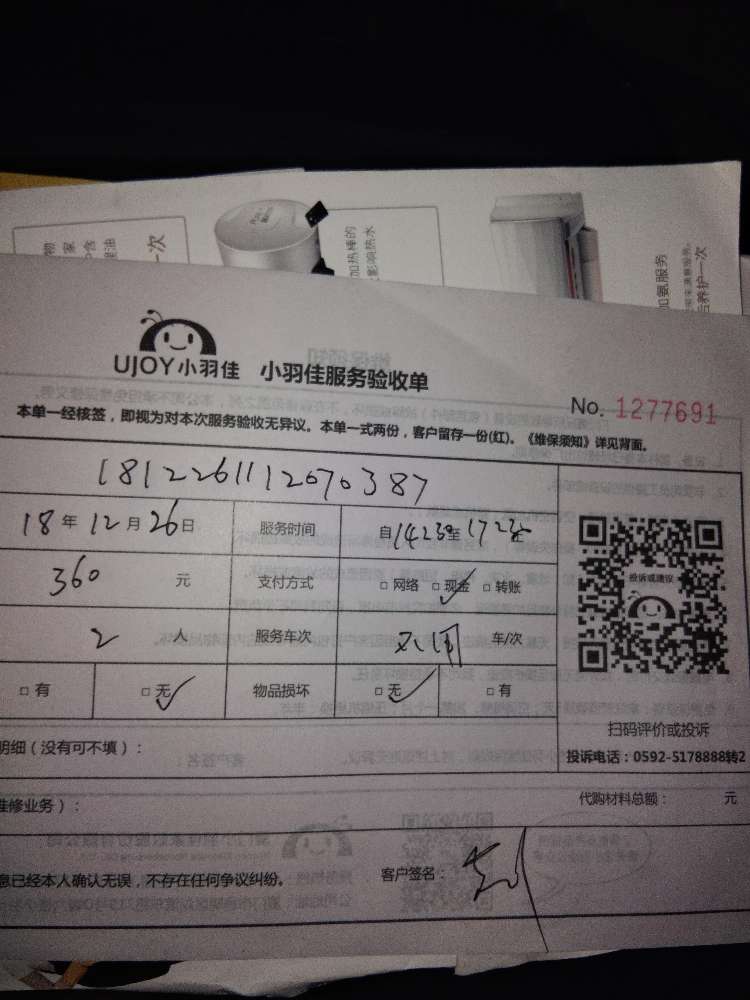 物
家
中含
油
一次
加热棒的
影响热水
加氨服务
养护一次
UJOY小羽佳 小羽佳服务验收单
No. 1277691
本单一经核签，即视为对本次服务验收无异议。本单一式两份，客户留存一份(红)。《维保须知》详见背面。
1812261112070387
18年12月26日 服务时间 自1423至172
360 元 支付方式 □网络 □现金 □转账
投诉或建议
2 人 服务车次 车/次
□有 □无 物品损坏 □无 □有
扫码评价或投诉
明细（没有可不填）：
投诉电话：0592-5178888转2
维修业务）：
代购材料总额： 元
息已经本人确认无误，不存在任何争议纠纷。 客户签名：